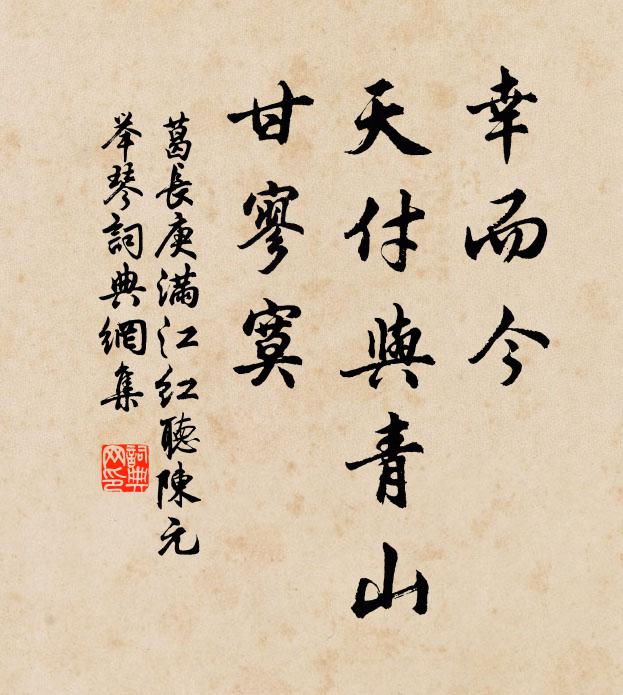 幸而今
天付與青山
甘寥寞
葛長庚满江红聽陳元
举琴詞典網集
詞典
网印